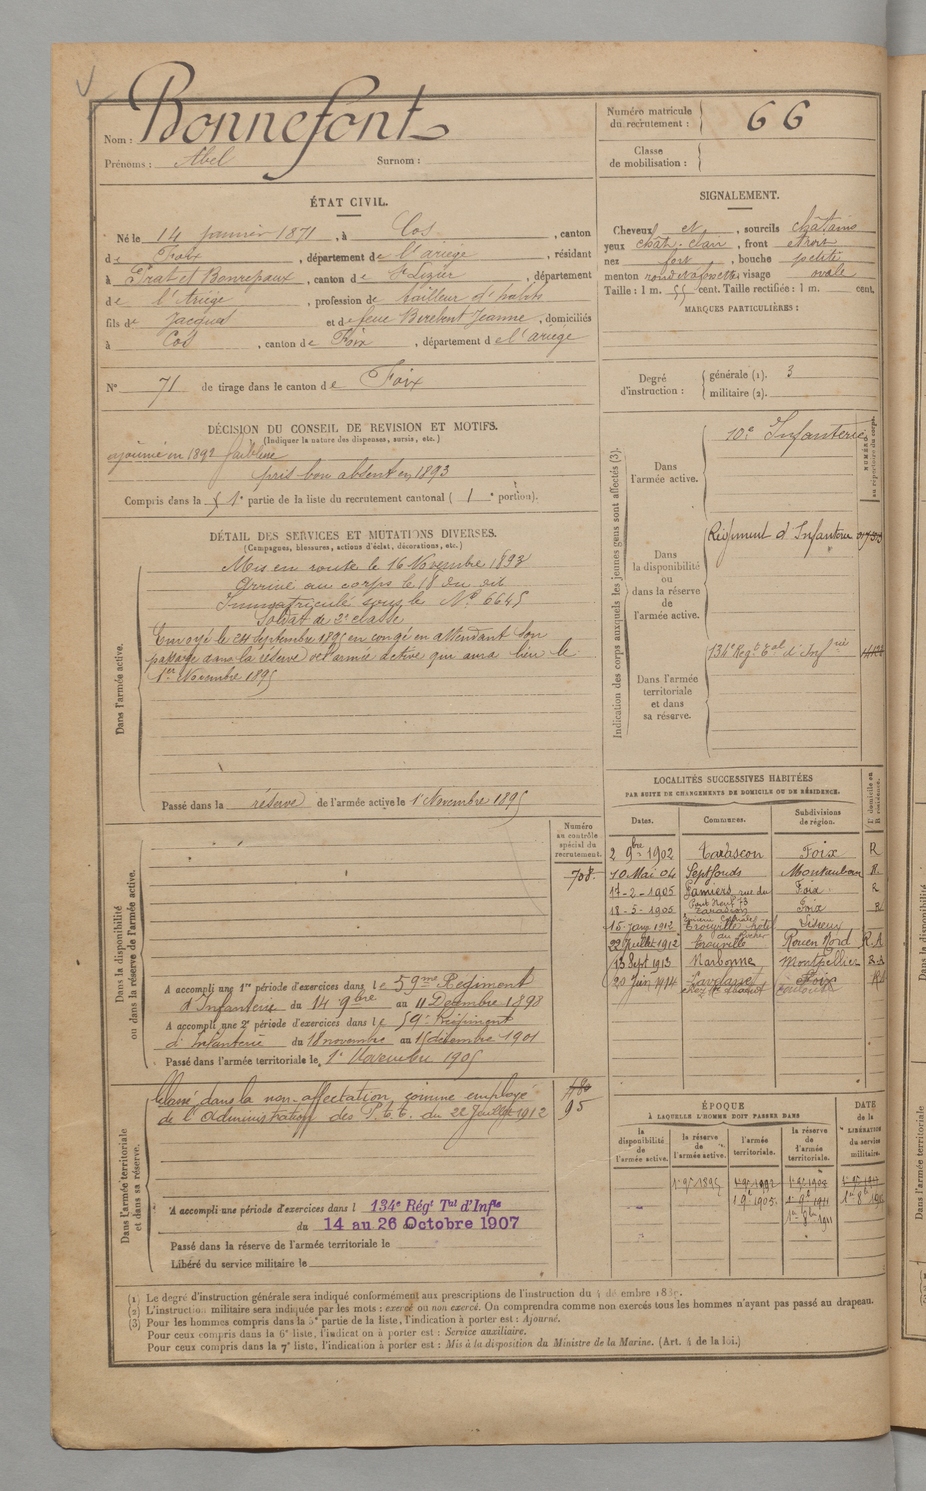 Nom : Bonnefont
Prénoms : Abel Surnom :
ÉTAT CIVIL.
Né le 14 janvier 1871, à Cos, canton
de Foix, département de l'ariège, résidant
à Prat et Bonrepaux, canton de St Lizier, département
de l'Ariège, profession de tailleur d'habits
fils de Jacques et de feue Berebent Jeanne, domiciliés
à Cos, canton de Foix, département de l'ariège
N° 71 de tirage dans le canton de Foix
DÉCISION DU CONSEIL DE REVISION ET MOTIFS.
(Indiquer la nature des dispenses, sursis, etc.)
ajourné en 1892 faiblesse
pris bon absent en 1893
Compris dans la 1e partie de la liste du recrutement cantonal ( 1 e portion).
DÉTAIL DES SERVICES ET MUTATIONS DIVERSES.
(Campagnes, blessures, actions d'éclat, décorations, etc.)
Dans l'armée active.
Mis en route le 16 Novembre 1893
Arrivé au corps le 18 du dit
Immatriculé sous le N° 6645
Soldat de 2e classe
Envoyé le 24 septembre 1895 en congé en attendant son
passage dans la réserve de l'armée active qui aura lieu le
1er Novembre 1895
Passé dans la réserve de l'armée active le 1er Novembre 1895
Dans la disponibilité
ou dans la réserve de l'armée active.
Numéro
au contrôle
spécial du
recrutement.
708.
A accompli une 1re période d'exercices dans le 59me Régiment
d'Infanterie du 14 9bre au 11 Decembre 1898
A accompli une 2e période d'exercices dans le 59e Régiment
d'Infanterie du 18 novembre au 15 décembre 1901
Passé dans l'armée territoriale le 1er Novembre 1905
Dans l'armée territoriale
et dans sa réserve.
Classé dans la non-affectation, comme employé
de l'Administration des P.t.t. du 22 Juillet 1912
480
95
A accompli une période d'exercices dans l 134e Régt Tal d'Infie
du 14 au 26 Octobre 1907
Passé dans la réserve de l'armée territoriale le
Libéré du service militaire le
Numéro matricule
du recrutement : 66
Classe
de mobilisation :
SIGNALEMENT.
Cheveux et, sourcils châtains
yeux chât. clair, front étroit
nez fort, bouche petite
menton rond à fossette, visage ovale
Taille : 1 m. 55 cent. Taille rectifiée : 1 m. cent.
MARQUES PARTICULIÈRES :
Degré
d'instruction :
générale (1). 3
militaire (2).
Indication des corps auxquels les jeunes gens sont affectés (3).
NUMÉRO
au répertoire du corps.
Dans
l'armée active.
10e Infanterie
Dans
la disponibilité
ou
dans la réserve
de
l'armée active.
Régiment d'Infanterie
Dans l'armée
territoriale
et dans
sa réserve.
134e Regt Tal d'Infrie
LOCALITÉS SUCCESSIVES HABITÉES
PAR SUITE DE CHANGEMENTS DE DOMICILE OU DE RÉSIDENCE.
Dates. Communes. Subdivisions de région. D domicile ou R résidence.
2 9bre 1902 Tarascon Foix R
10 Mai 04 Septfonds Montauban R.
17-2-1905 Pamiers, rue du Foix R
Pont Neuf 73
18-5-1905 Tarascon Foix R
15 janv 1912 Trouville hôtel Lisieux
du Rocher
22 Juillet 1912 Trouville Rouen Nord R.A
13 Sept 1913 Narbonne Montpellier
20 Juin 1914 Lavelanet Foix
ÉPOQUE
À LAQUELLE L'HOMME DOIT PASSER DANS
DATE
de la
LIBÉRATION
du service
militaire.
la disponibilité de l'armée active. la réserve de l'armée active. l'armée territoriale. la réserve de l'armée territoriale.
1er 9bre 1895
1 9b 1905
(1) Le degré d'instruction générale sera indiqué conformément aux prescriptions de l'instruction du 4 décembre 1889.
(2) L'instruction militaire sera indiquée par les mots : exercé ou non exercé. On comprendra comme non exercés tous les hommes n'ayant pas passé au drapeau.
(3) Pour les hommes compris dans la 5e partie de la liste, l'indication à porter est : Ajourné.
Pour ceux compris dans la 6e liste, l'indication à porter est : Service auxiliaire.
Pour ceux compris dans la 7e liste, l'indication à porter est : Mis à la disposition du Ministre de la Marine. (Art. 4 de la loi.)